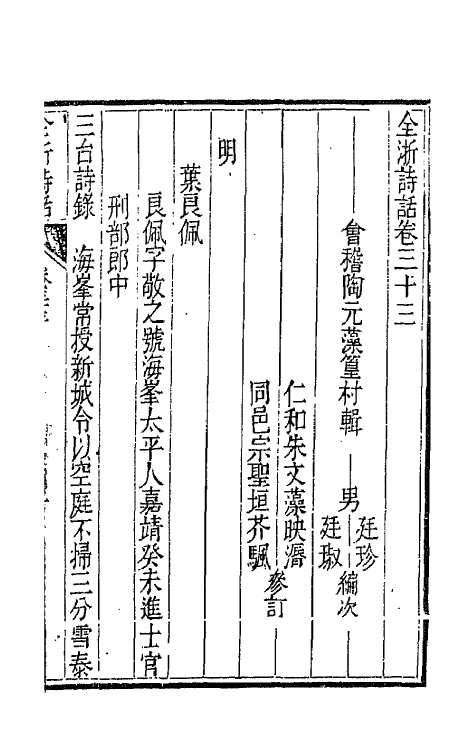 全浙詩話卷三十三
會稽陶元藻篁村輯
男廷珍
廷琡
編次
仁和朱文藻映漘
同邑宗聖垣芥颿
參訂
明
葉良佩
良佩字敬之號海峯太平人嘉靖癸未進士官
刑部郎中
三台詩錄 海峯常授新城令以空庭不掃三分雪泰
全浙詩話